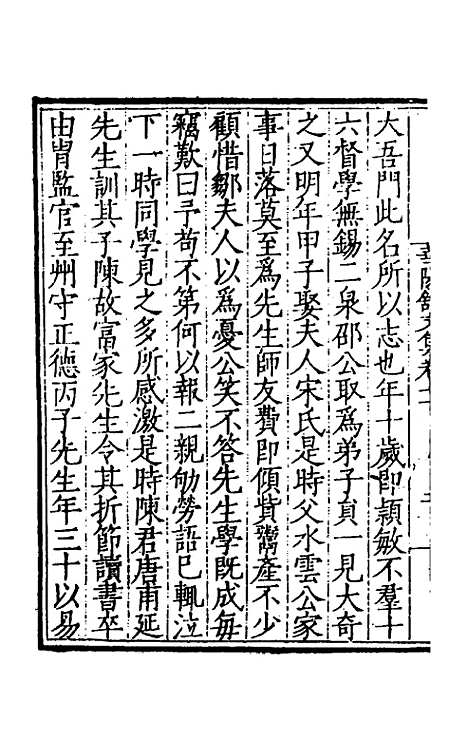 大吾門此名所以志也年十歲即頴敏不羣十
六督學無錫二泉邵公取爲弟子員一見大奇
之又明年甲子娶夫人宋氏是時父水雲公家
事日落莫至爲先生師友費即傾貲鬻產不少
顧惜鄒夫人以爲憂公笑不答先生學既成每
竊歎曰予苟不第何以報二親劬勞語已輒泣
下一時同學見之多所感激是時陳君唐甫延
先生訓其子陳故富家先生令其折節讀書卒
由胄監官至州守正德丙子先生年三十以易